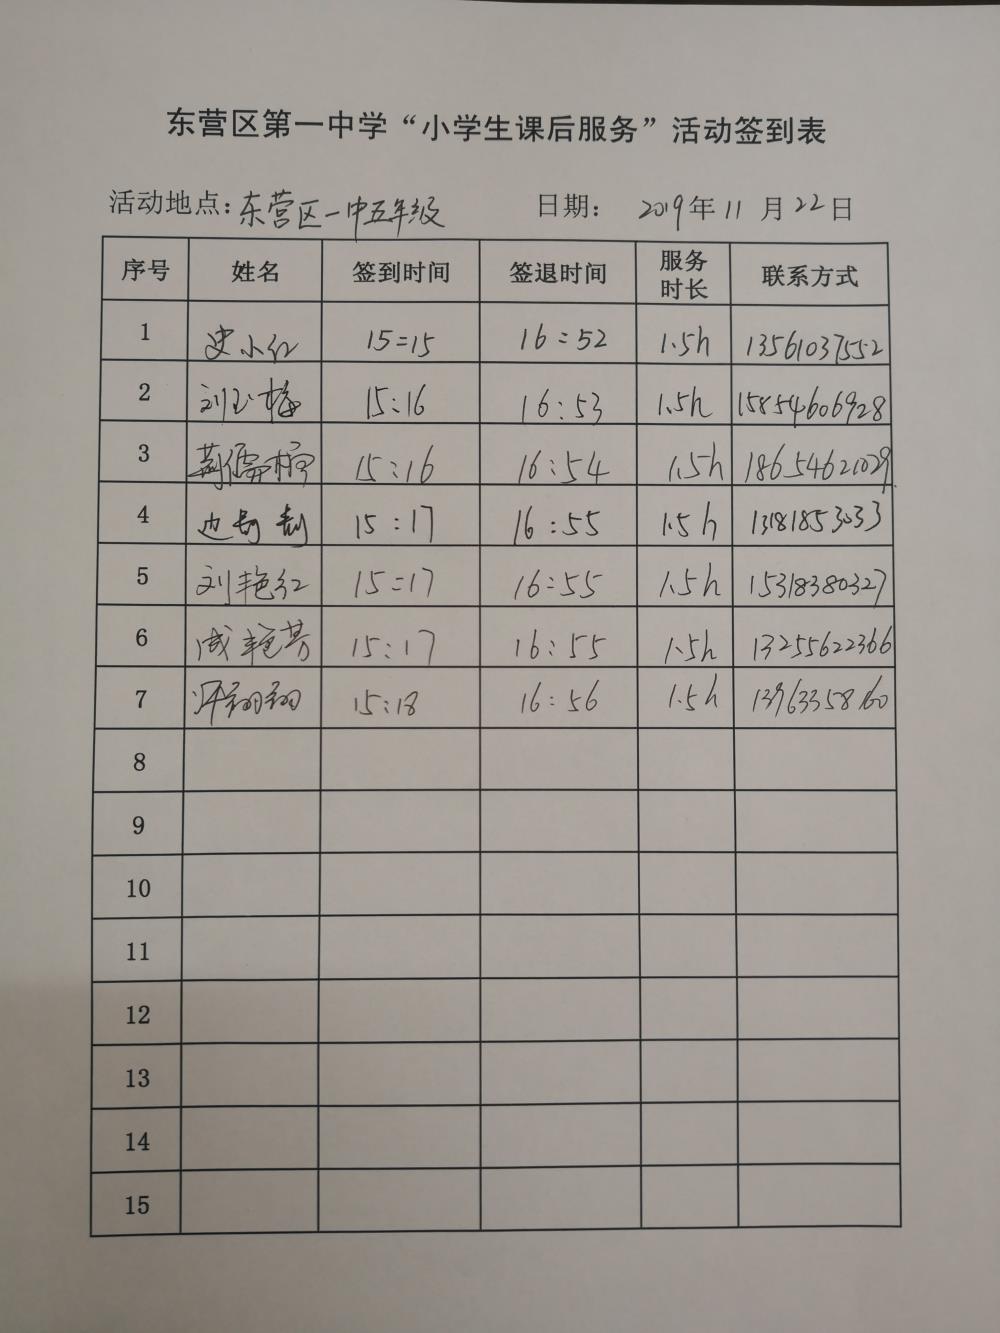 东营区第一中学“小学生课后服务”活动签到表
活动地点：东营区一中五年级 日期： 2019年11月22日
序号 姓名 签到时间 签退时间 服务时长 联系方式
1 史小红 15:15 16:52 1.5h 13561037552
2 刘玉梅 15:16 16:53 1.5h 15854606928
3 15:16 16:54 1.5h 18654621029
4 15:17 16:55 1.5h 13181853033
5 刘艳红 15:17 16:55 1.5h 15318380327
6 成艳芳 15:17 16:55 1.5h 13255622366
7 翔翔 15:18 16:56 1.5h 13963358160
8
9
10
11
12
13
14
15